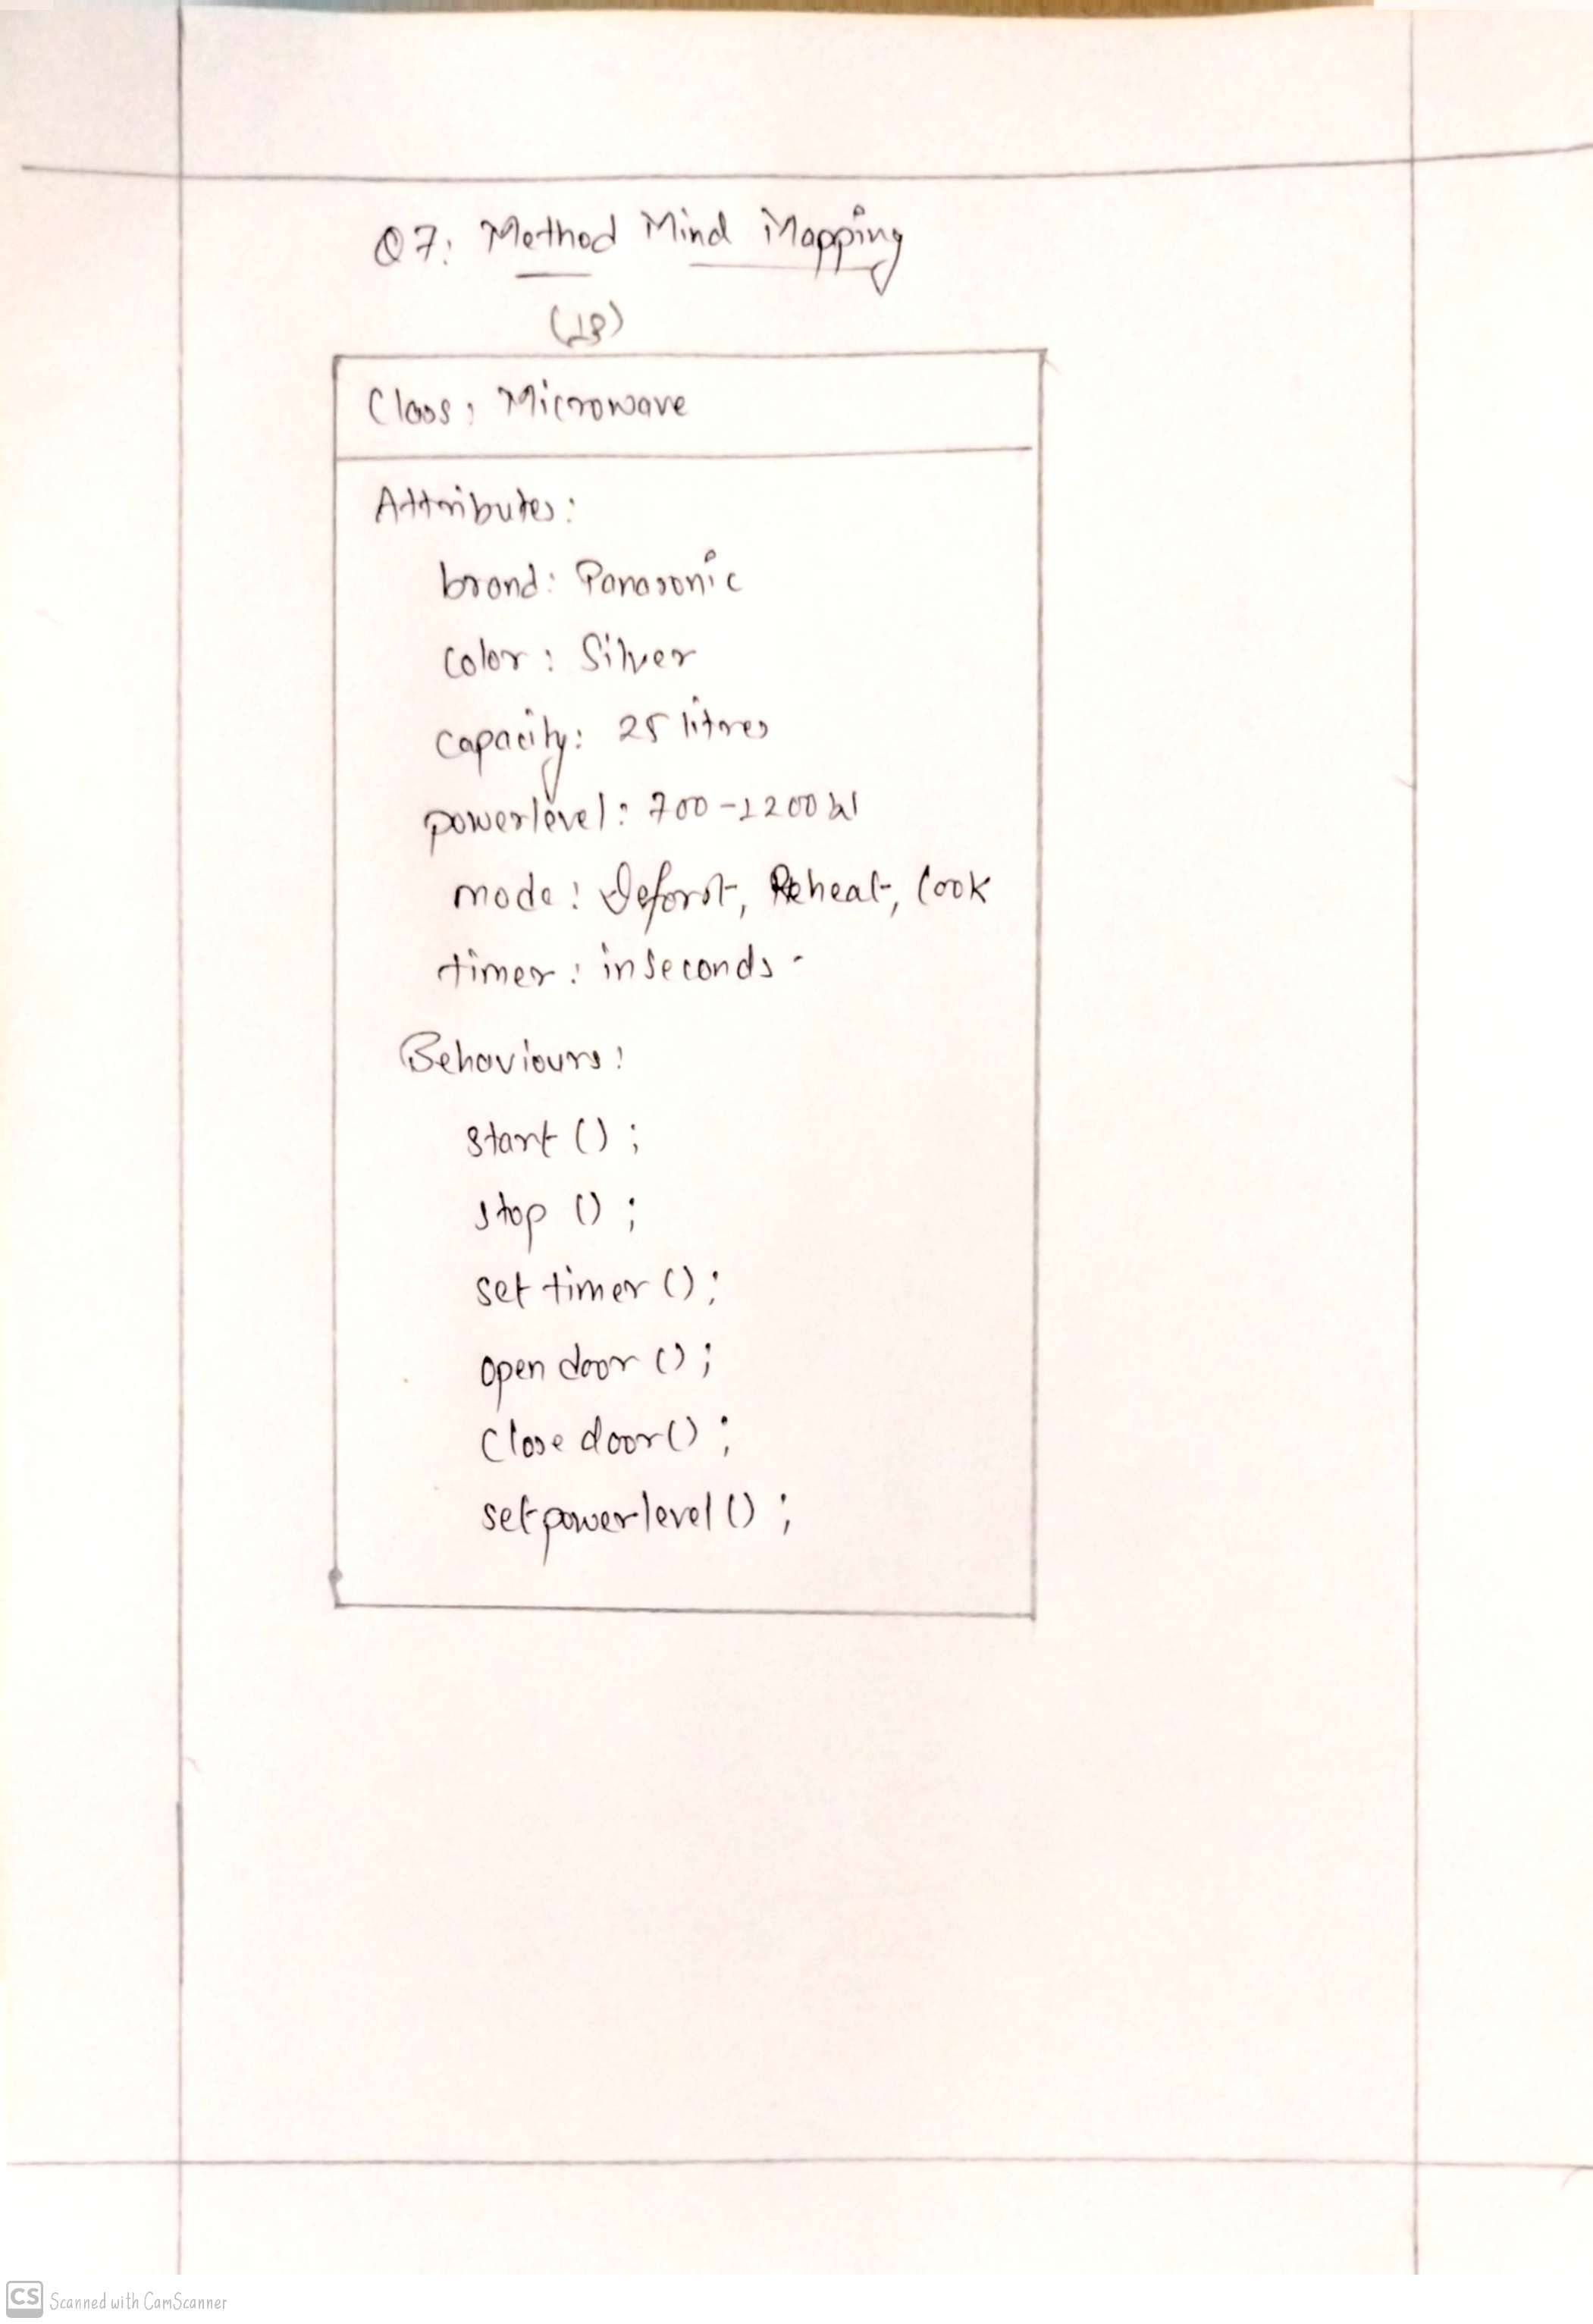 Q7: Method Mind Mapping
(18)
Class: Microwave
Attributes:
brand: Panasonic
color: Silver
capacity: 25 litres
powerlevel: 700-1200W
mode: Deforst, Reheat, Cook
timer: in seconds
Behaviours:
start ();
stop ();
set timer ();
open door ();
close door();
setpowerlevel ();
CS Scanned with CamScanner